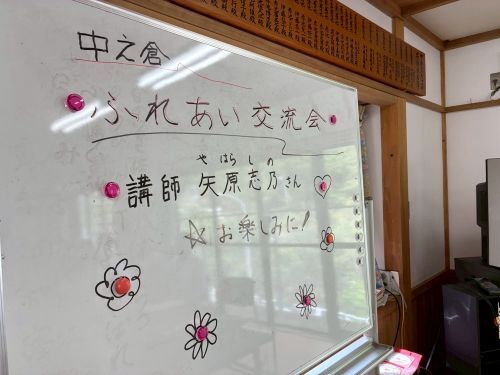 中之倉
ふれあい交流会
やはらしの
講師 矢原志乃さん
☆お楽しみに!